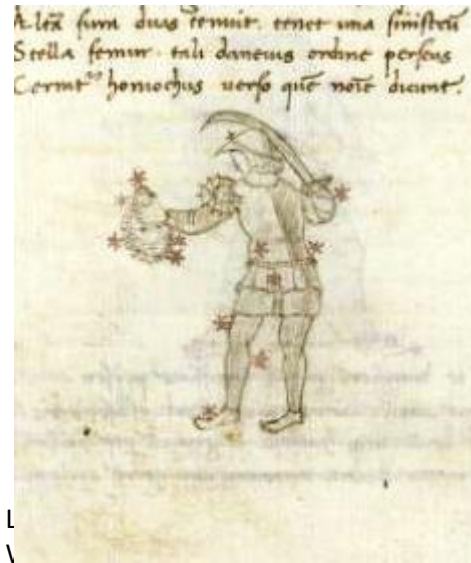 Altã sura duas tenuit. tenet una sinistrũ
Stella femur. tali daneius ordine perseus
Cernit͛ homochus uerso quẽ noĩe dicunt.
L
V